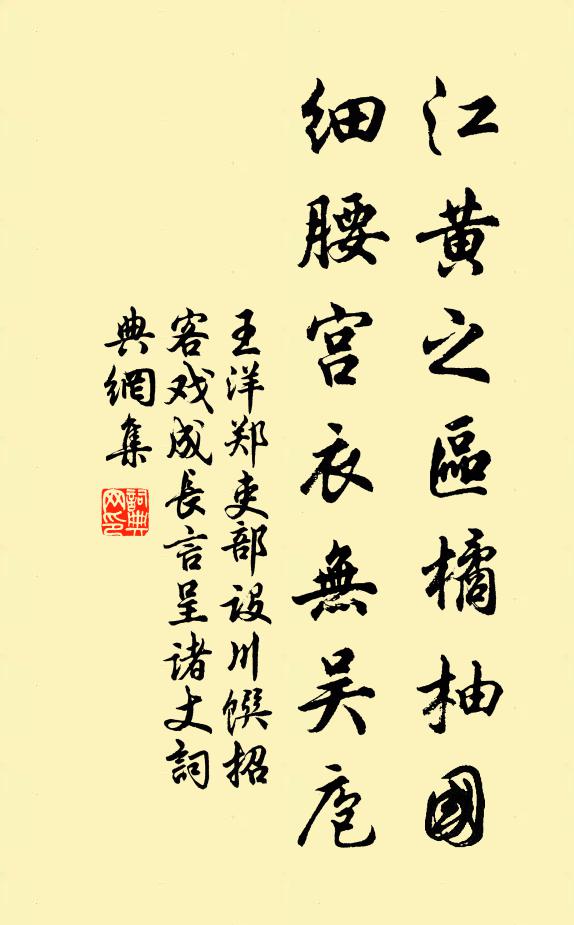 江黄之區橘柚國
細腰宫衣無吴庖
王洋郑吏部设川馔招
客戏成長言呈诸丈詞
典網集
詞典网印